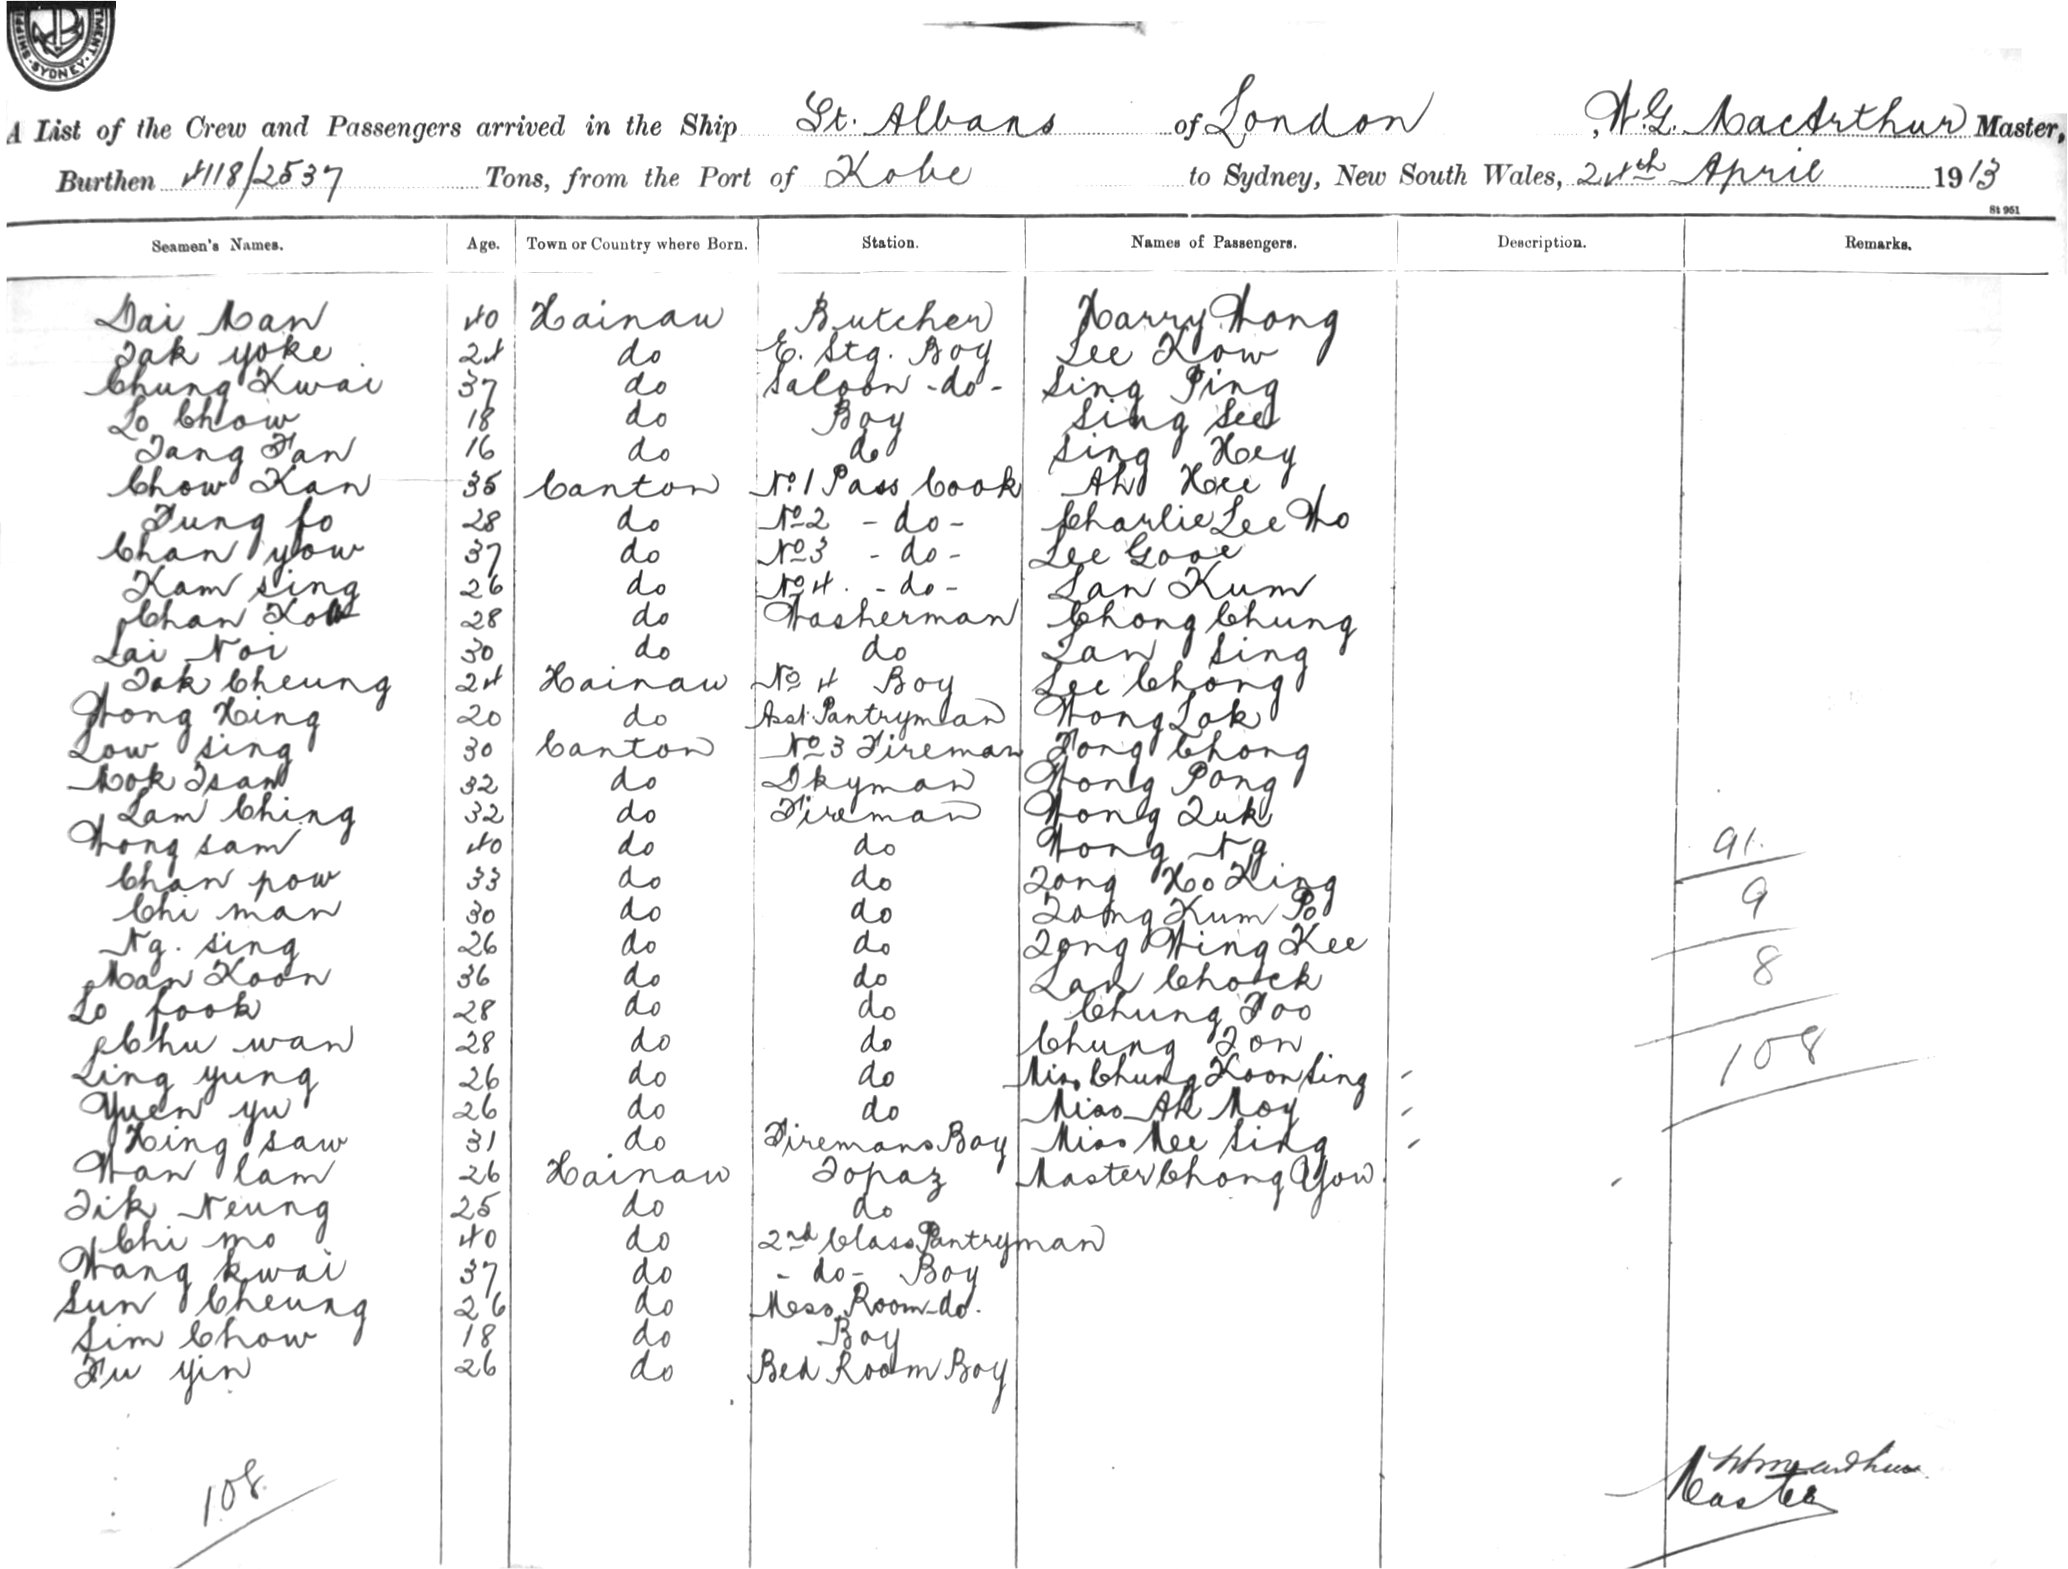 SHIPPI MENT. SYDNEY.
A List of the Crew and Passengers arrived in the Ship St. Albans of London, W.G. MacArthur Master,
Burthen 4118/2537 Tons, from the Port of Kobe to Sydney, New South Wales, 24th April 1913
St 961
Seamen's Names. Age. Town or Country where Born. Station. Names of Passengers. Description. Remarks.
Dai Man 40 Hainau Butcher Harry Wong
Tak yoke 24 do E. Stg. Boy Lee Kow
Chung Kwai 37 do Saloon -do- Sing Ping
Lo Chow 18 do Boy Sing See
Tang Fan 16 do do Sing Hey
Chow Kan 35 Canton No 1 Pass Cook Ah Hee
Fung fo 28 do No 2 - do - Charlie Lee Who
Chan yow 37 do No 3 - do - Lee Gooe
Kam sing 26 do No 4. - do - Lan Kum
Chan 28 do Washerman Chong Chung
Lai Noi 30 do do Lan Sing
Tak Cheung 24 Hainau No 4 Boy Lee Chong
Wong Hing 20 do Asst. Pantryman Wong Lok
Low sing 30 Canton No 3 Fireman Fong Chong
Mok Tsan 32 do Dkyman Wong Pong
Lam Ching 32 do Fireman Wong Quk
Wong sam 40 do do Wong Ng 91.
Chan pow 33 do do Qong Ho King 9
Chi man 30 do do Qong Kum Po
Ng. sing 26 do do Qong Wing Kee
Man Koon 36 do do Lan Chock 8
Lo fook 28 do do Chung Foo
Chu wan 28 do do Chung Fon 108
Ling yung 26 do do Miss Chung Koon Sing
Yuen yu 26 do do Miss Ah Moy
Hing saw 31 do Firemans Boy Miss Mee Sing
Wan lam 26 Hainau Topaz Master Chong Yow.
Tik Neung 25 do do
Chi mo 40 do 2nd Class Pantryman
Wang kwai 37 do - do - Boy
Sun Cheung 26 do Mess Room -do.
Sim Chow 18 do Boy
Fu yin 26 do Bed Room Boy
108.
Master